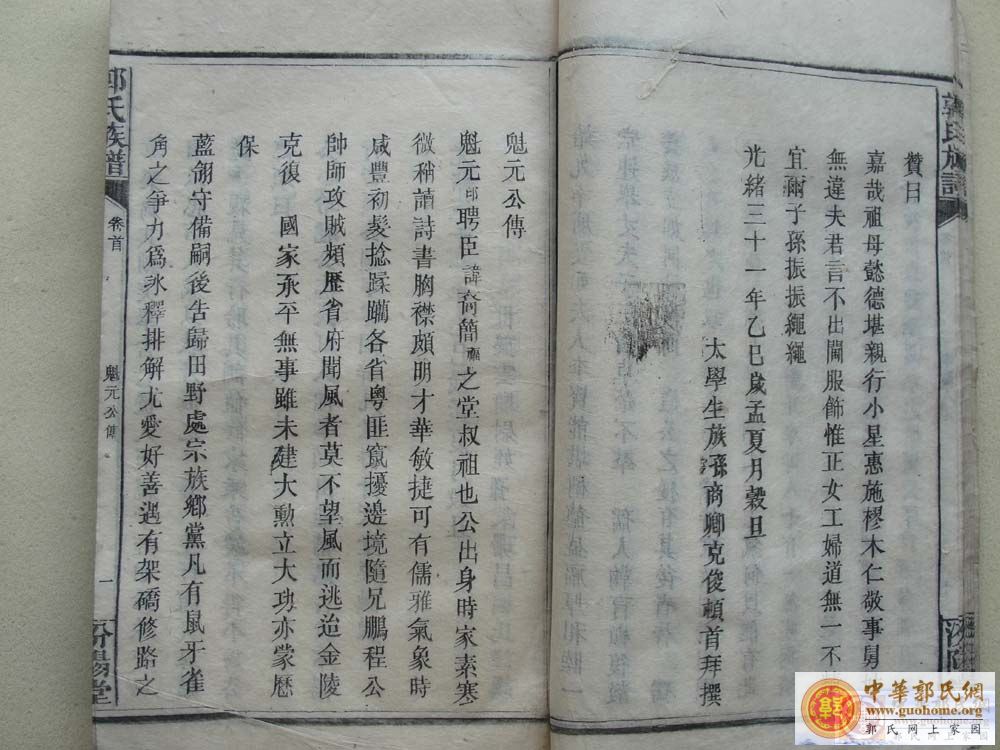 贊曰
嘉哉祖母懿德堪親行小星惠施樛木仁敬事舅
無違夫君言不出閫服飾惟正女工婦道無一不
宜爾子孫振振繩繩
光緒三十一年乙巳歲孟夏月穀旦
太學生族孫商卿克俊頓首拜撰
郭氏族譜
汾陽
魁元公傳
魁元聘臣諱裔簡之堂叔祖也公出身時家素寒
微稱讀詩書胸襟頗明才華敏捷可有儒雅氣象時
咸豐初髮捻蹂躪各省粵匪竄擾邊境隨兄鵬程公
帥師攻賊頻歷省府聞風者莫不望風而逃迨金陵
克復 國家承平無事雖未建大勳立大功亦蒙歷
保
藍翎守備嗣後告歸田野處宗族鄉黨凡有鼠牙雀
角之爭力爲氷釋排解尤愛好善遇有架橋修路之
郭氏族譜
卷首
魁元公傳
一
汾陽堂
中華郭氏網
www.guohome.org
郭氏网上家园